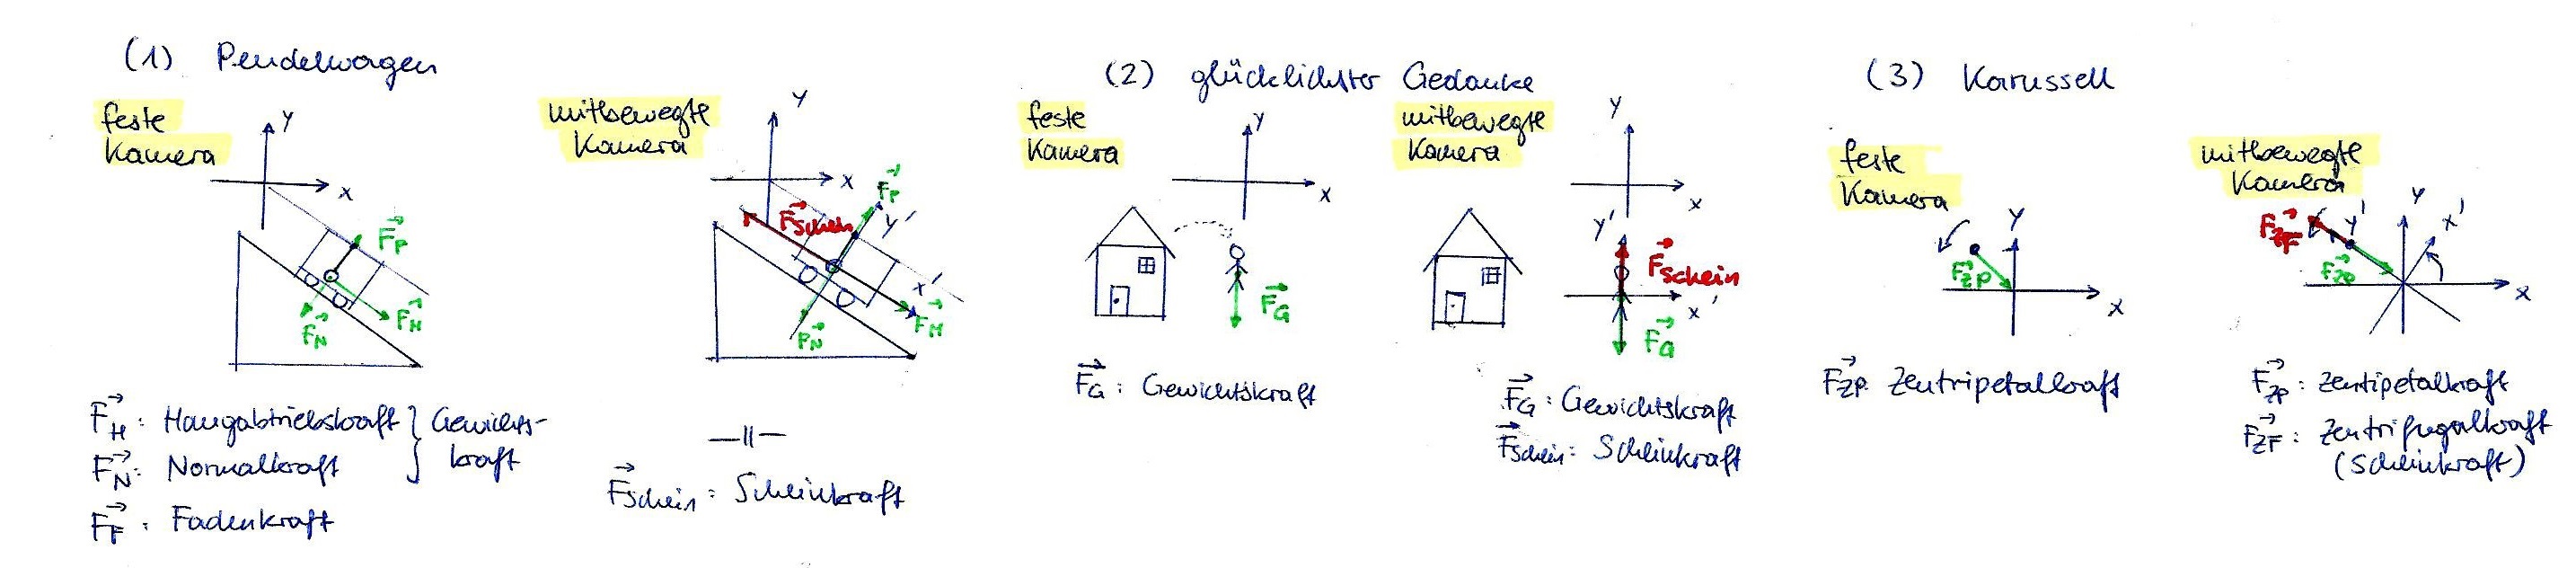 (1) Pendelwagen
feste
Kamera
y
x
F_F
F_N
F_H
F_H : Hangabtriebskraft } Gewichts-
F_N : Normalkraft kraft
F_F : Fadenkraft
mitbewegte
Kamera
y
x
F_F
y'
F_Schein
x'
F_H
F_N
—||—
F_Schein : Scheinkraft
(2) glücklichster Gedanke
feste
Kamera
y
x
F_G
F_G : Gewichtskraft
mitbewegte
Kamera
y
x
y'
F_Schein
x'
F_G
F_G : Gewichtskraft
F_Schein : Scheinkraft
(3) Karussell
feste
Kamera
y
x
F_ZP
F_ZP Zentripetalkraft
mitbewegte
Kamera
y
x'
F_ZF
y'
F_ZP
x
F_ZP : Zentipetalkraft
F_ZF : Zentrifugalkraft
(Scheinkraft)